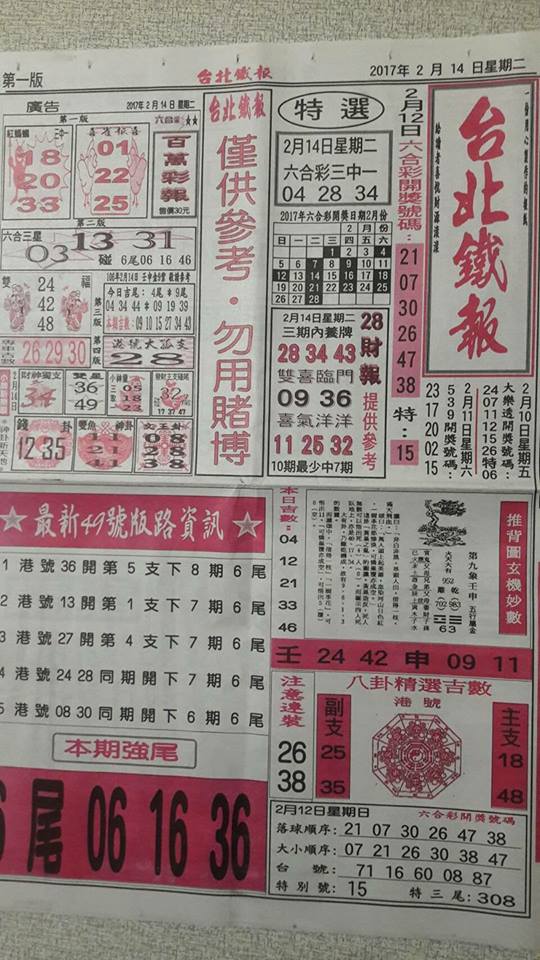 第一版
台北鐵報
2017年2月14日星期二
廣告
2017年2月14日星期二
第一版
六合彩★★
紅螞蟻
三中一
18
20
33
喜雀報喜
01
22
25
百萬彩報
售價30元
第二版
六合三星
03 13 31
碰 6尾06 16 46
雙
24
42
48
福
106年2月14日 壬申金9宮 敬請參考
今日吉尾:4尾*9尾
04 34 44*09 19 39
本期吉數:09 10 15 27 34 43
第三版
第四版
26 29 30
港號大孤支
28
2月14日
財神獨支
34
雙星
36
49
小神童
05
18
23
32
17 37 47
錢
卦
12 35
雙魚
神卦
11
21
41
文王卦
08
28
38
台北鐵報
僅供參考・勿用賭博
特選
2月14日星期二
六合彩三中一
04 28 34
2017年六合彩開獎日期2月份
2 月 份
1 2 3 4
5 6 7 8 9 10 11
12 13 14 15 16 17 18
19 20 21 22 23 24 25
26 27 28
2月14日星期二
三期內養牌
28 34 43
雙喜臨門
09 36
喜氣洋洋
11 25 32
10期最少中7期
28
財報
提供參考
2月12日六合彩開獎號碼:
21 07 30 26 47 38
特:15
台北鐵報
2月10日星期五
大樂透開獎號碼:
24 07 11 12 15 26 特06
2月11日星期六
539開獎號碼:
23 17 20 02 15
★最新49號版路資訊★
1 港號36開第5支下8期6尾
2 港號13開第1支下7期6尾
3 港號27開第4支下7期6尾
4 港號24 28同期開下7期6尾
5 港號08 30同期開下6期6尾
本期強尾
6尾 06 16 36
本日吉數:
04
12
21
33
46
推背圖玄機妙數
第九象壬申
五行屬金
952
離 乾
702 983
63
壬 24 42 申 09 11
注意連裝
26
38
八卦精選吉數
港號
副支
25
35
主支
18
48
2月12日星期日
六合彩開獎號碼
落球順序:21 07 30 26 47 38
大小順序:07 21 26 30 38 47
台 號:71 16 60 08 87
特別號:15 特三尾:308